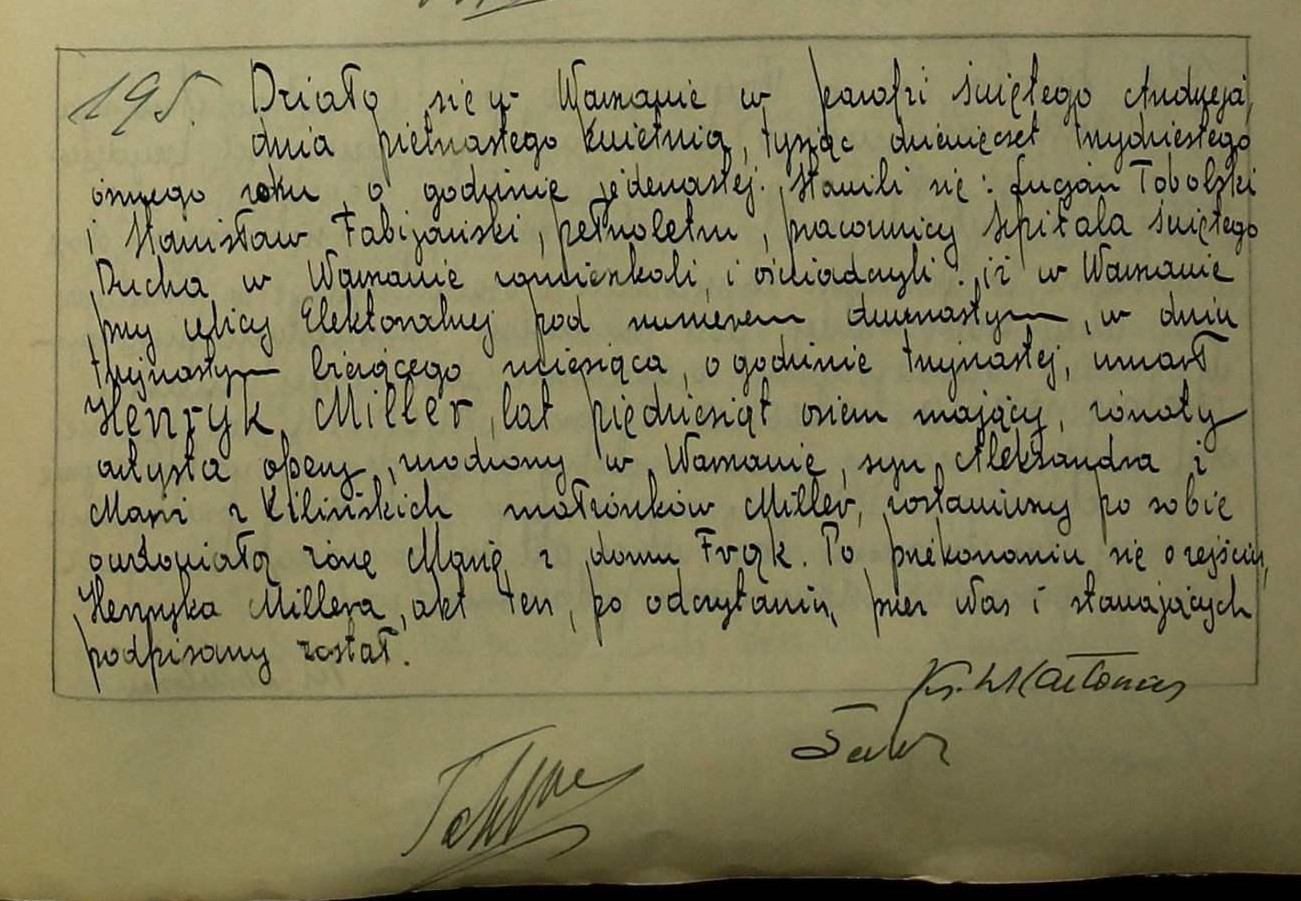 195. Działo się w Warszawie w parafii świętego Andrzeja,
dnia piętnastego kwietnia, tysiąc dziewięćset trzydziestego
ósmego roku, o godzinie jedenastej. Stawili się: Lucjan Tobolski
i Stanisław Fabijański, pełnoletni, pracownicy szpitala świętego
Ducha w Warszawie zamieszkali, i oświadczyli: iż w Warszawie
przy ulicy Elektoralnej pod numerem dwunastym, w dniu
trzynastym bieżącego miesiąca, o godzinie trzynastej, umarł
Henryk Miller, lat pięćdziesiąt osiem mający, żonaty
artysta opery, urodzony w Warszawie, syn Aleksandra i
Marii z Kilińskich małżonków Miller, zostawiwszy po sobie
owdowiałą żonę Marię z domu Frąk. Po przekonaniu się o zejściu,
Henryka Millera, akt ten, po odczytaniu, przez Nas i stawających
podpisany został.
Ks.